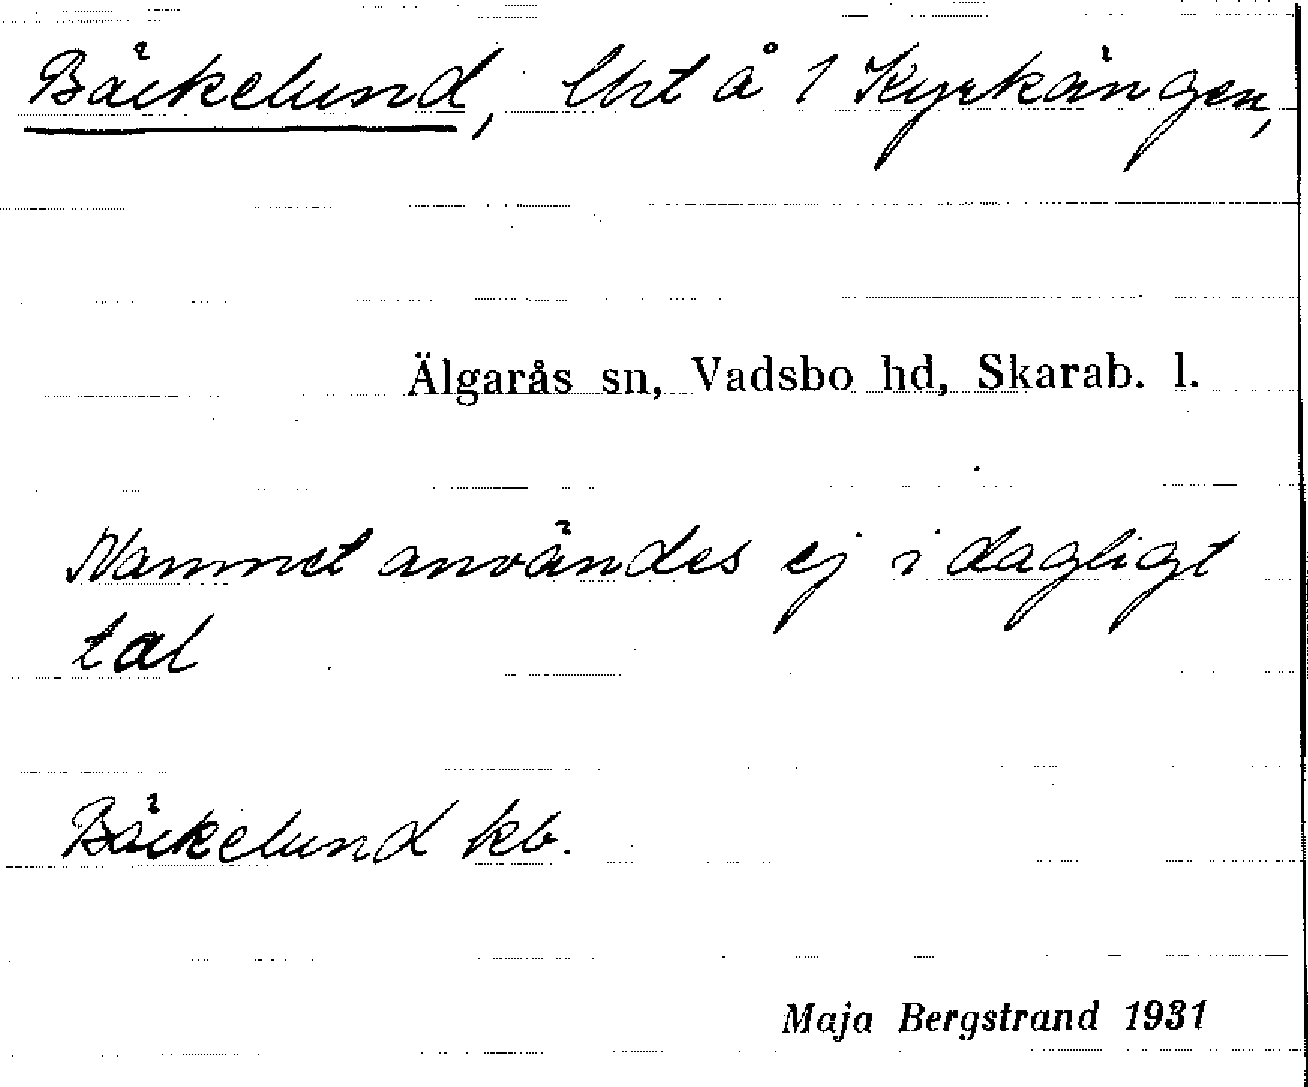 Bäckelund, lht å 1 Kyrkängen,
Älgarås sn, Vadsbo hd, Skarab. l.
Namnet användes ej i dagligt
tal
Bäckelund kb.
Maja Bergstrand 1931